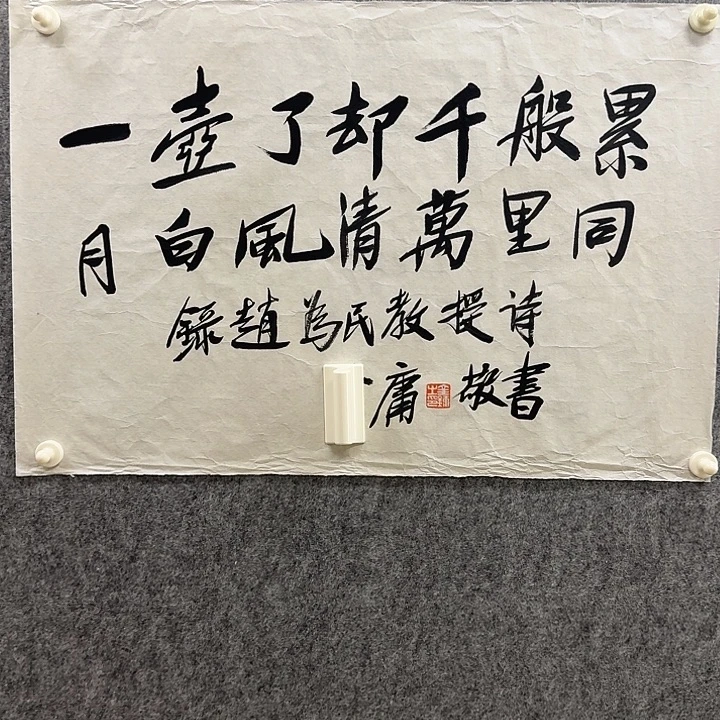 一壺了却千般累
月白風清萬里同
錄趙為民教授诗
庸 敬書